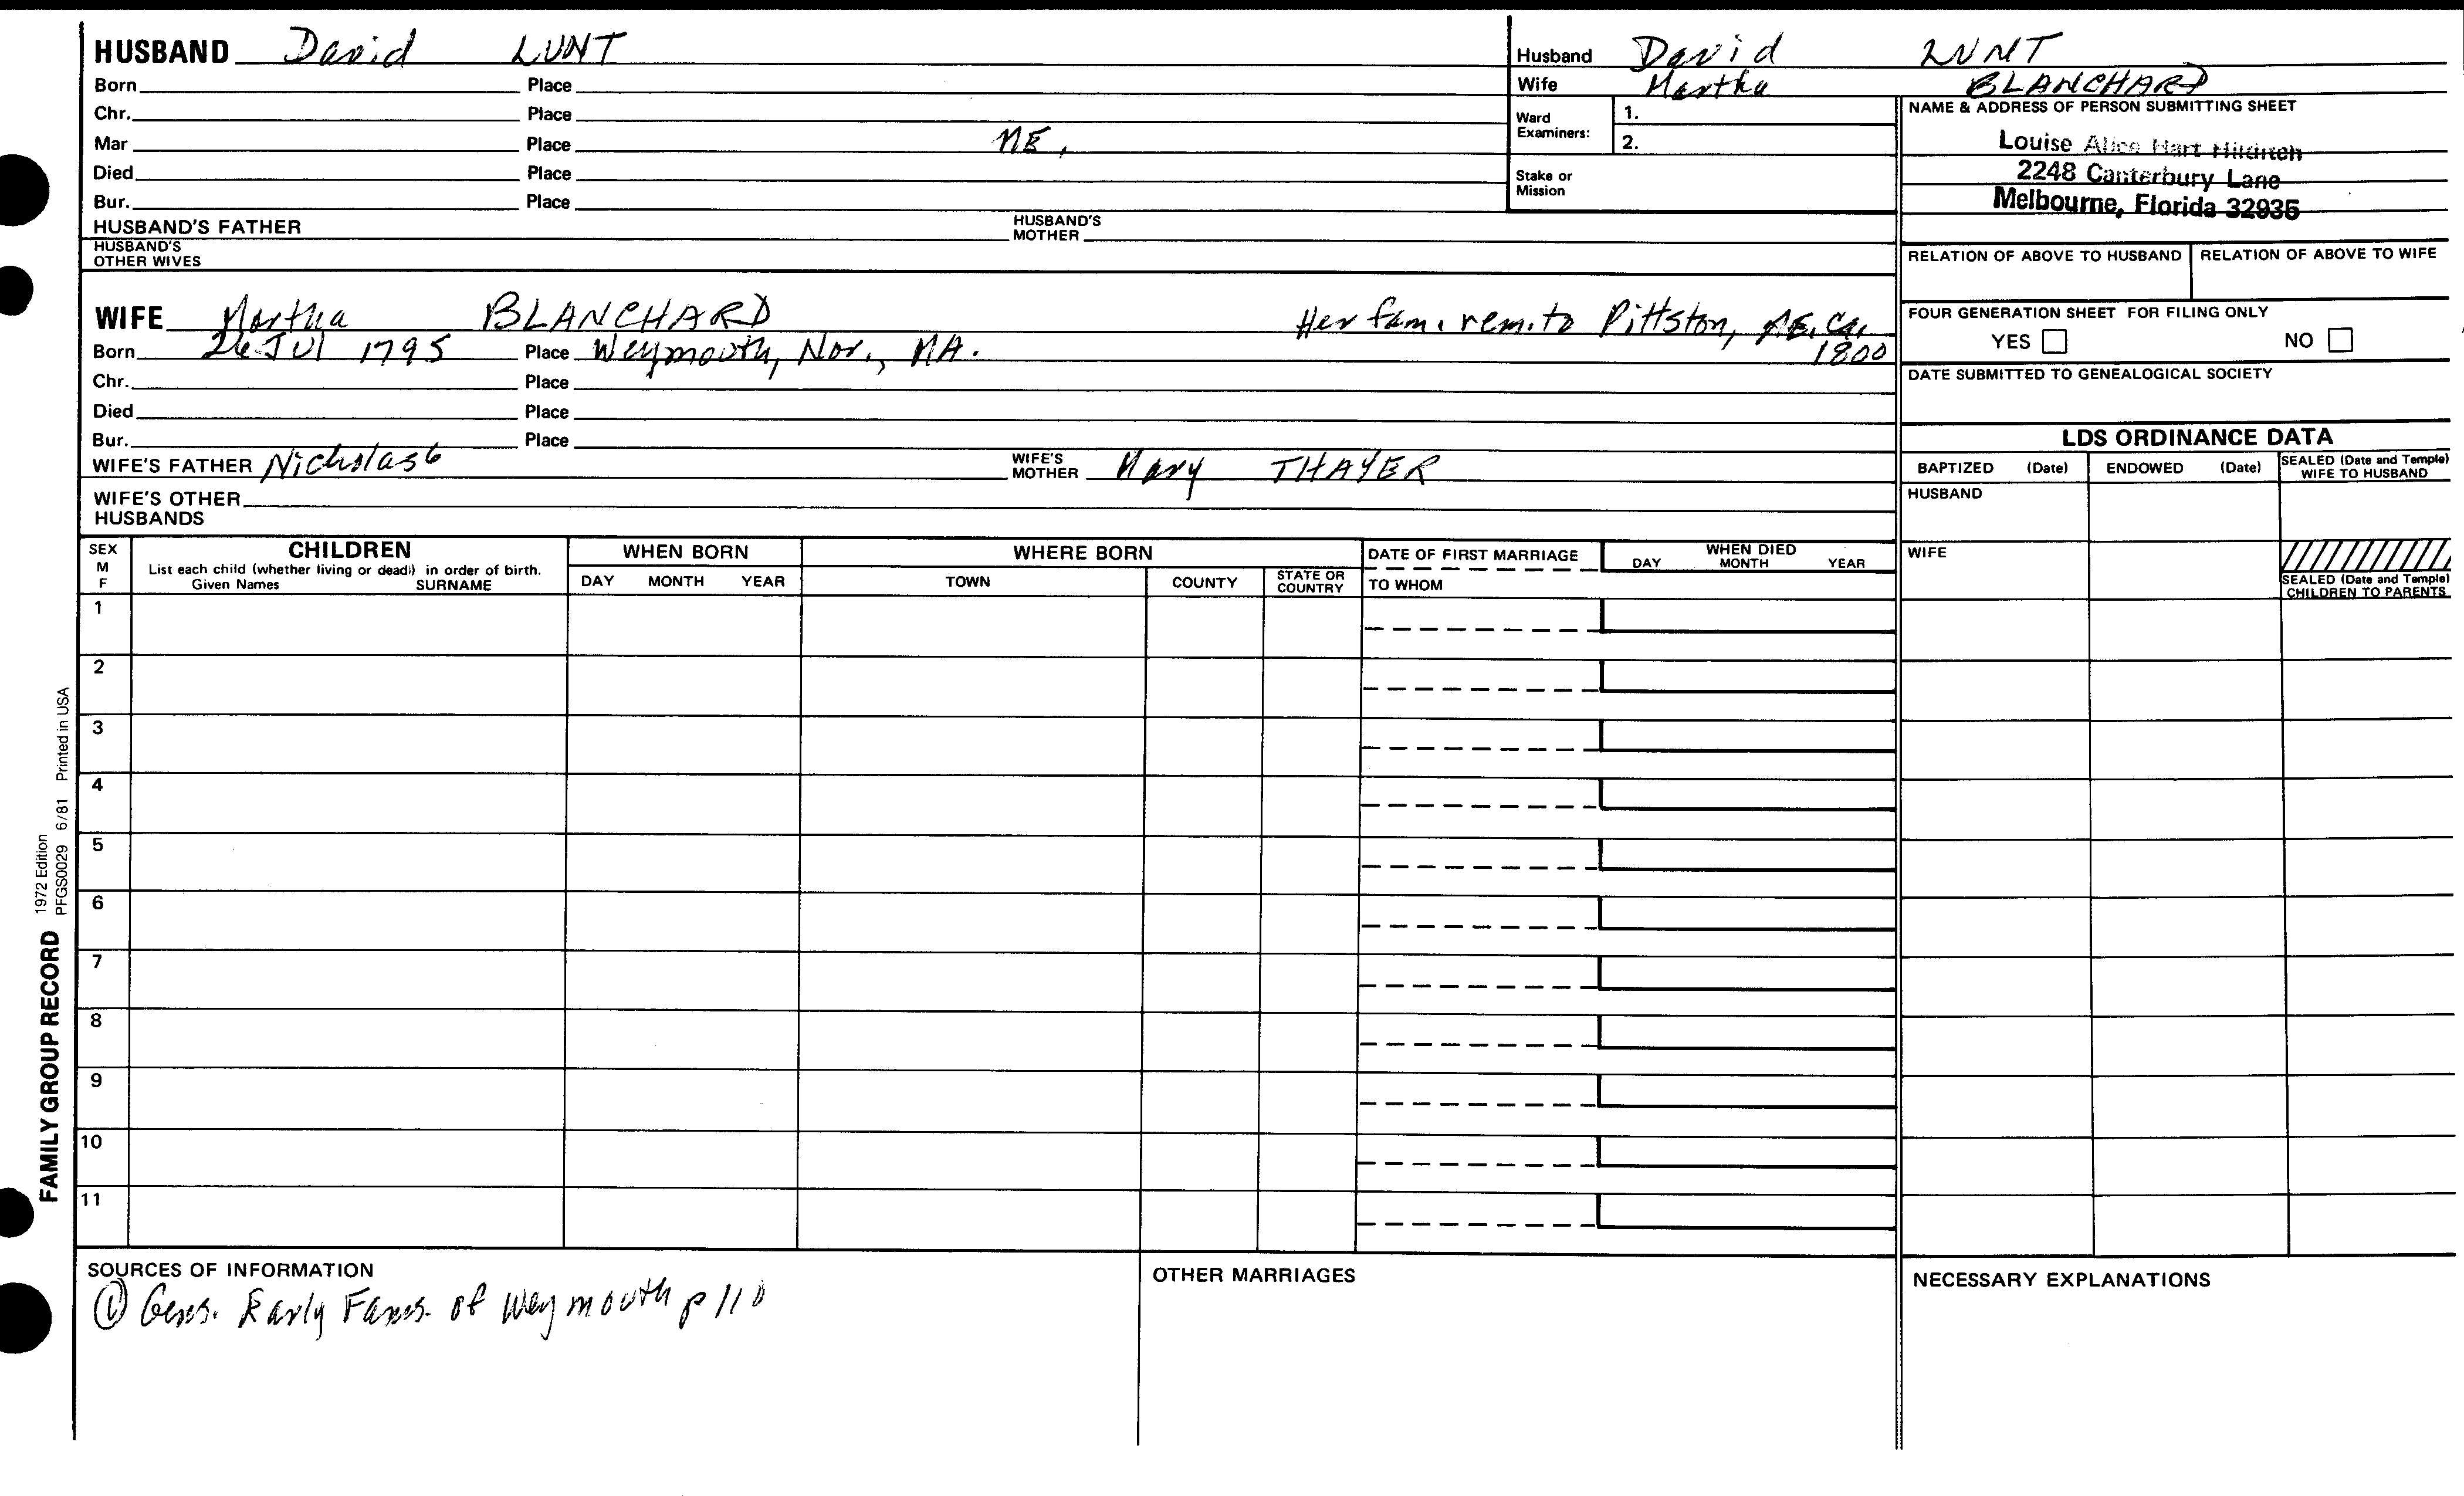 HUSBAND David LUNT
Born Place
Chr. Place
Mar Place ME.
Died Place
Bur. Place
HUSBAND'S FATHER HUSBAND'S MOTHER
HUSBAND'S OTHER WIVES
Husband David LUNT
Wife Martha BLANCHARD
Ward Examiners: 1.
2.
Stake or Mission
NAME & ADDRESS OF PERSON SUBMITTING SHEET
Louise Alice Hart Hilditch
2248 Canterbury Lane
Melbourne, Florida 32935
RELATION OF ABOVE TO HUSBAND RELATION OF ABOVE TO WIFE
FOUR GENERATION SHEET FOR FILING ONLY
YES NO
DATE SUBMITTED TO GENEALOGICAL SOCIETY
WIFE Martha BLANCHARD Her fam. rem. to Pittston, ME. Ca. 1800
Born 26 JUl 1795 Place Weymouth, Nor., MA.
Chr. Place
Died Place
Bur. Place
WIFE'S FATHER Nicholas6 WIFE'S MOTHER Mary THAYER
WIFE'S OTHER HUSBANDS
LDS ORDINANCE DATA
BAPTIZED (Date) ENDOWED (Date) SEALED (Date and Temple) WIFE TO HUSBAND
HUSBAND
WIFE
SEALED (Date and Temple) CHILDREN TO PARENTS
SEX M F
CHILDREN
List each child (whether living or dead) in order of birth.
Given Names SURNAME
WHEN BORN
DAY MONTH YEAR
WHERE BORN
TOWN COUNTY STATE OR COUNTRY
DATE OF FIRST MARRIAGE
TO WHOM
WHEN DIED
DAY MONTH YEAR
1
2
3
4
5
6
7
8
9
10
11
SOURCES OF INFORMATION
① Gens. Early Fams. of Weymouth p 110
OTHER MARRIAGES
NECESSARY EXPLANATIONS
FAMILY GROUP RECORD 1972 Edition
PFGS0029 6/81 Printed in USA